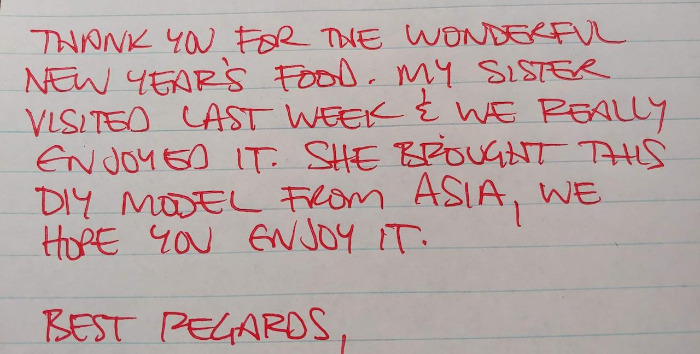 THANK YOU FOR THE WONDERFUL
NEW YEAR'S FOOD. MY SISTER
VISITED LAST WEEK & WE REALLY
ENJOYED IT. SHE BROUGHT THIS
DIY MODEL FROM ASIA, WE
HOPE YOU ENJOY IT.
BEST REGARDS,